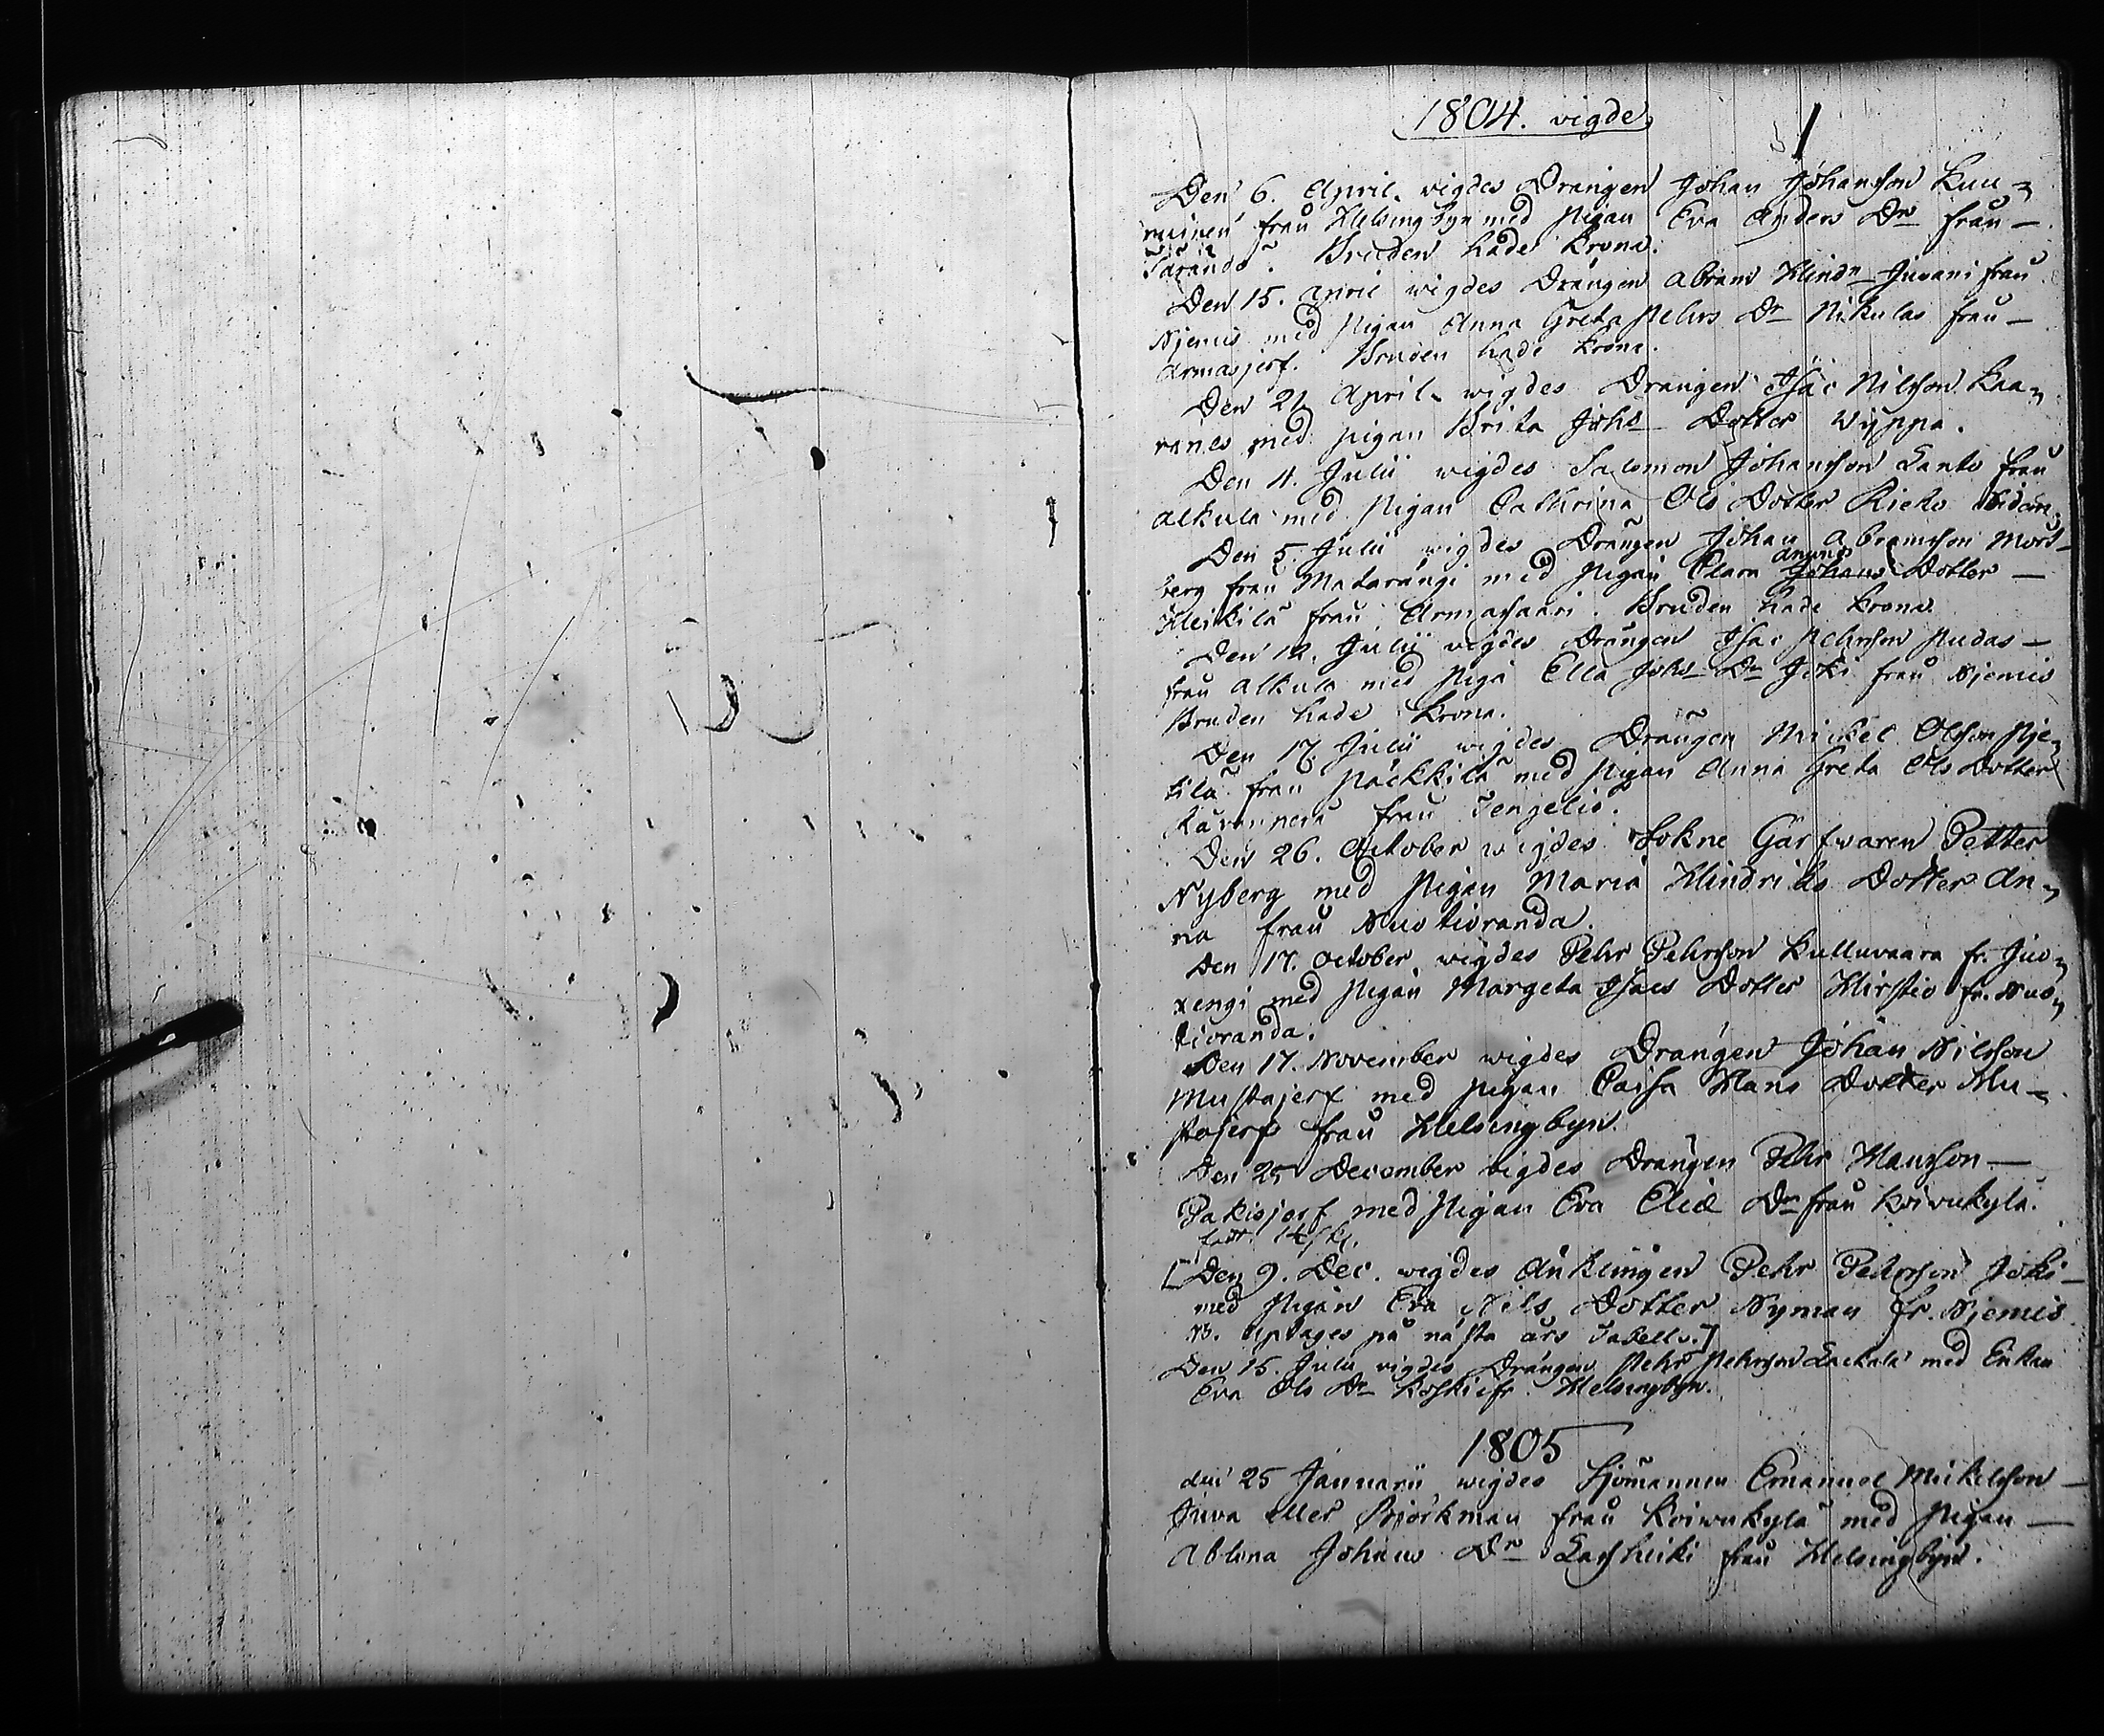 1804. vigde
1
Den 6. April. vigdes Drängen Johan Johansson Kuu=
ruinen från Helsingbyn med Pigan Eva Anders Dr från
Tärändö. Bruden hade Krona.
Den 15. April wigdes Drängen Abram Hindr Juvani från
Njemis med Pigan Anna Greta Pehrs Dr Nikulas från
Armasjerf. Bruden hade Krona.
Den 21 April. wigdes Drängen Isac Nilsson Kaa=
ranes med pigan Brita Johs Dotter Wyppa.
Den 4. Julii wigdes Salomon Johansson Lanto från
Alkula med Pigan Cathrina Ols Dotter Rieko
Den 5. Julii wigdes Drängen Johan Abramsson Mors=
berg från Matarängi med Pigan Clara Johans Dotter
Heikilä från Armasaari. Bruden hade Krona.
Den 12. Julii wigdes Drängen Isac Pehrsson Pudas
från Alkula med Piga Ella Johs Dr Joki från Njemis
Bruden hade Krona.
Den 17. Julii wigdes Drängen Mickel Olsson Pie=
tilä från Päckkilä med Pigan Anna Greta Ols Dotter
från Tengeliö.
Den 26. October wigdes Sokne Garfwaren Petter
Nyberg med Pigan Maria Hindriks Dotter An=
na från Ruskioranda.
Den 17. October wigdes Pehr Pehrsson Kulluvaara fr. Juo=
xengi med Pigan Margeta Isacs Dotter Hirstio fr. Rus=
kioranda.
Den 17. November wigdes Drängen Johan Nilsson
Mustajerf med pigan Caisa Hans Dotter Mu=
stajerf från Helsingbyn.
Den 25 December vigdes Drängen Pehr Mansson
Pakisjerf med Pigan Eva Eliæ Dr från Koivukylä.
[Den 9. Dec. wigdes Änklingen Pehr Pehrsson Joki
med Pigan Eva Nils Dotter Nyman fr. Njemis
NB. Uptages på nästa års Tabelle.]
Den 15. Julii vigdes Drängen Pehr Pehrsson Lackala med Enkan
Eva Ols Dr Koski fr. Helsingbyn.
1805
den 25 Januarii wigdes Sjömannen Emanuel Mickelsson
Juva eller Björkman från Koivukylä med Pigan
Ablona Johans Dr Lassheiki från Helsingbyn.